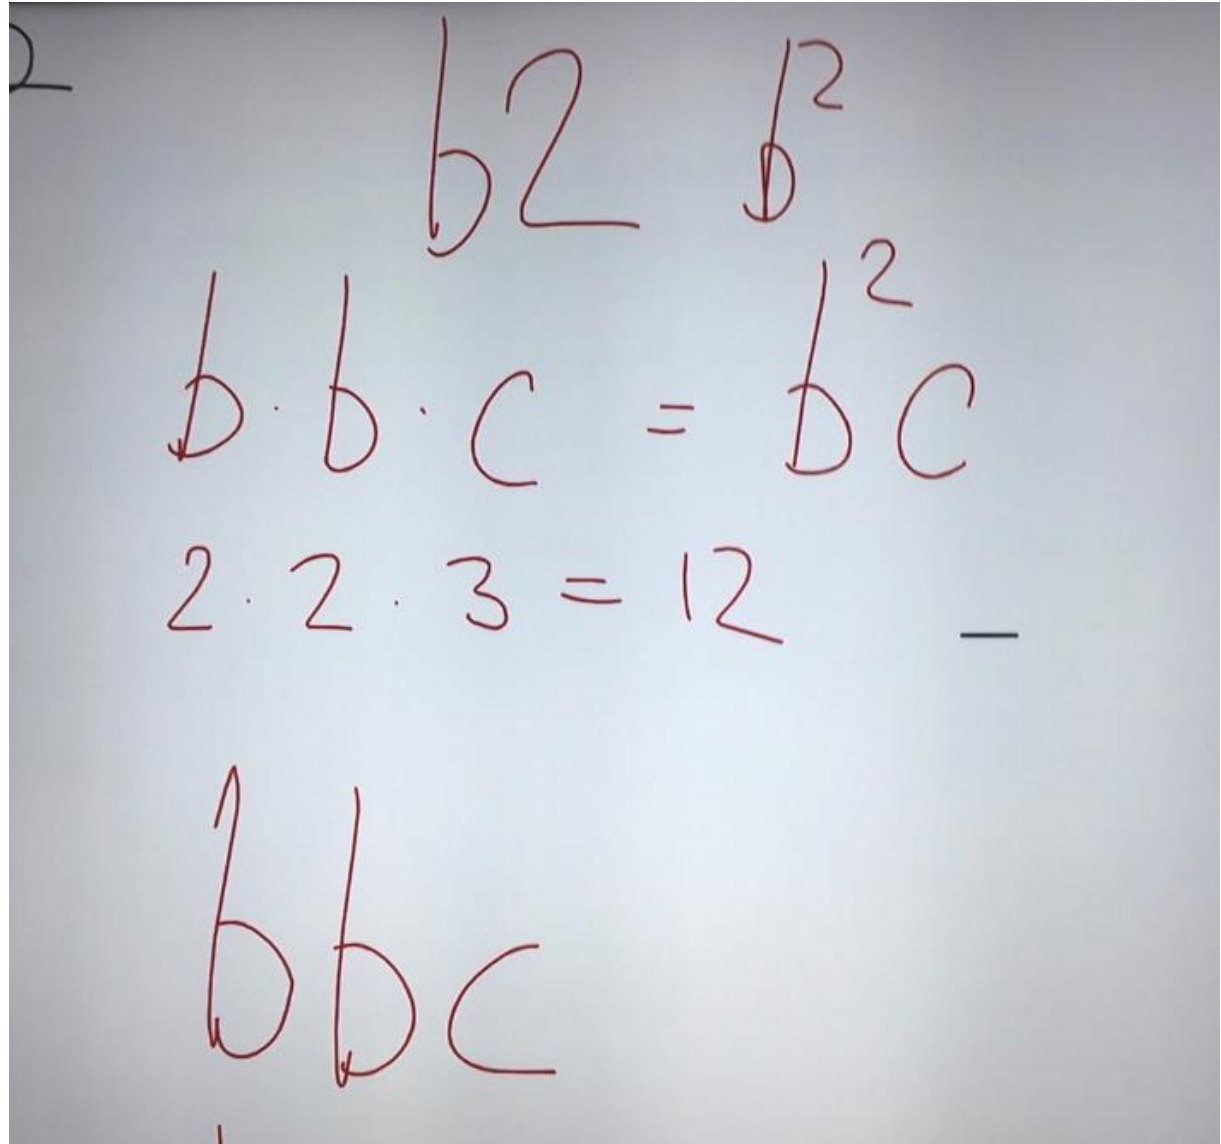 b2 b²
b · b · c = b²c
2 · 2 · 3 = 12
bbc